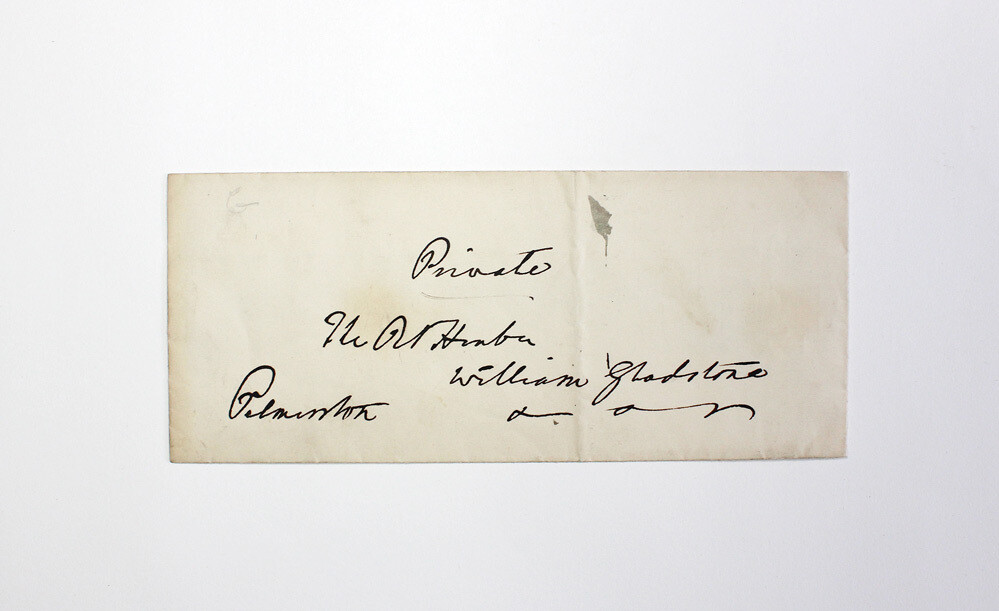 Private
The Rt Honble
William Gladstone
Palmerston